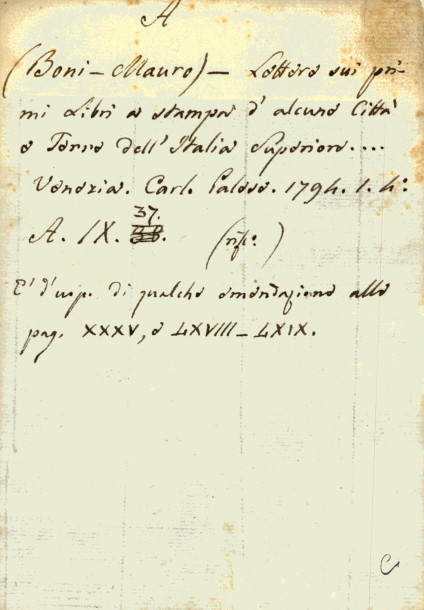 A
(Boni - Mauro) - Lettere sui pri-
mi Libri a stampa d'alcune Città
e Terre dell'Italia Superiore....
Venezia. Carl. Palese. 1794. 1. 4.°
37.
A. IX. 38. (risc.)
E' d'uop. di qualche emendazione alle
pag. XXXV, e LXVIII - LXIX.
C